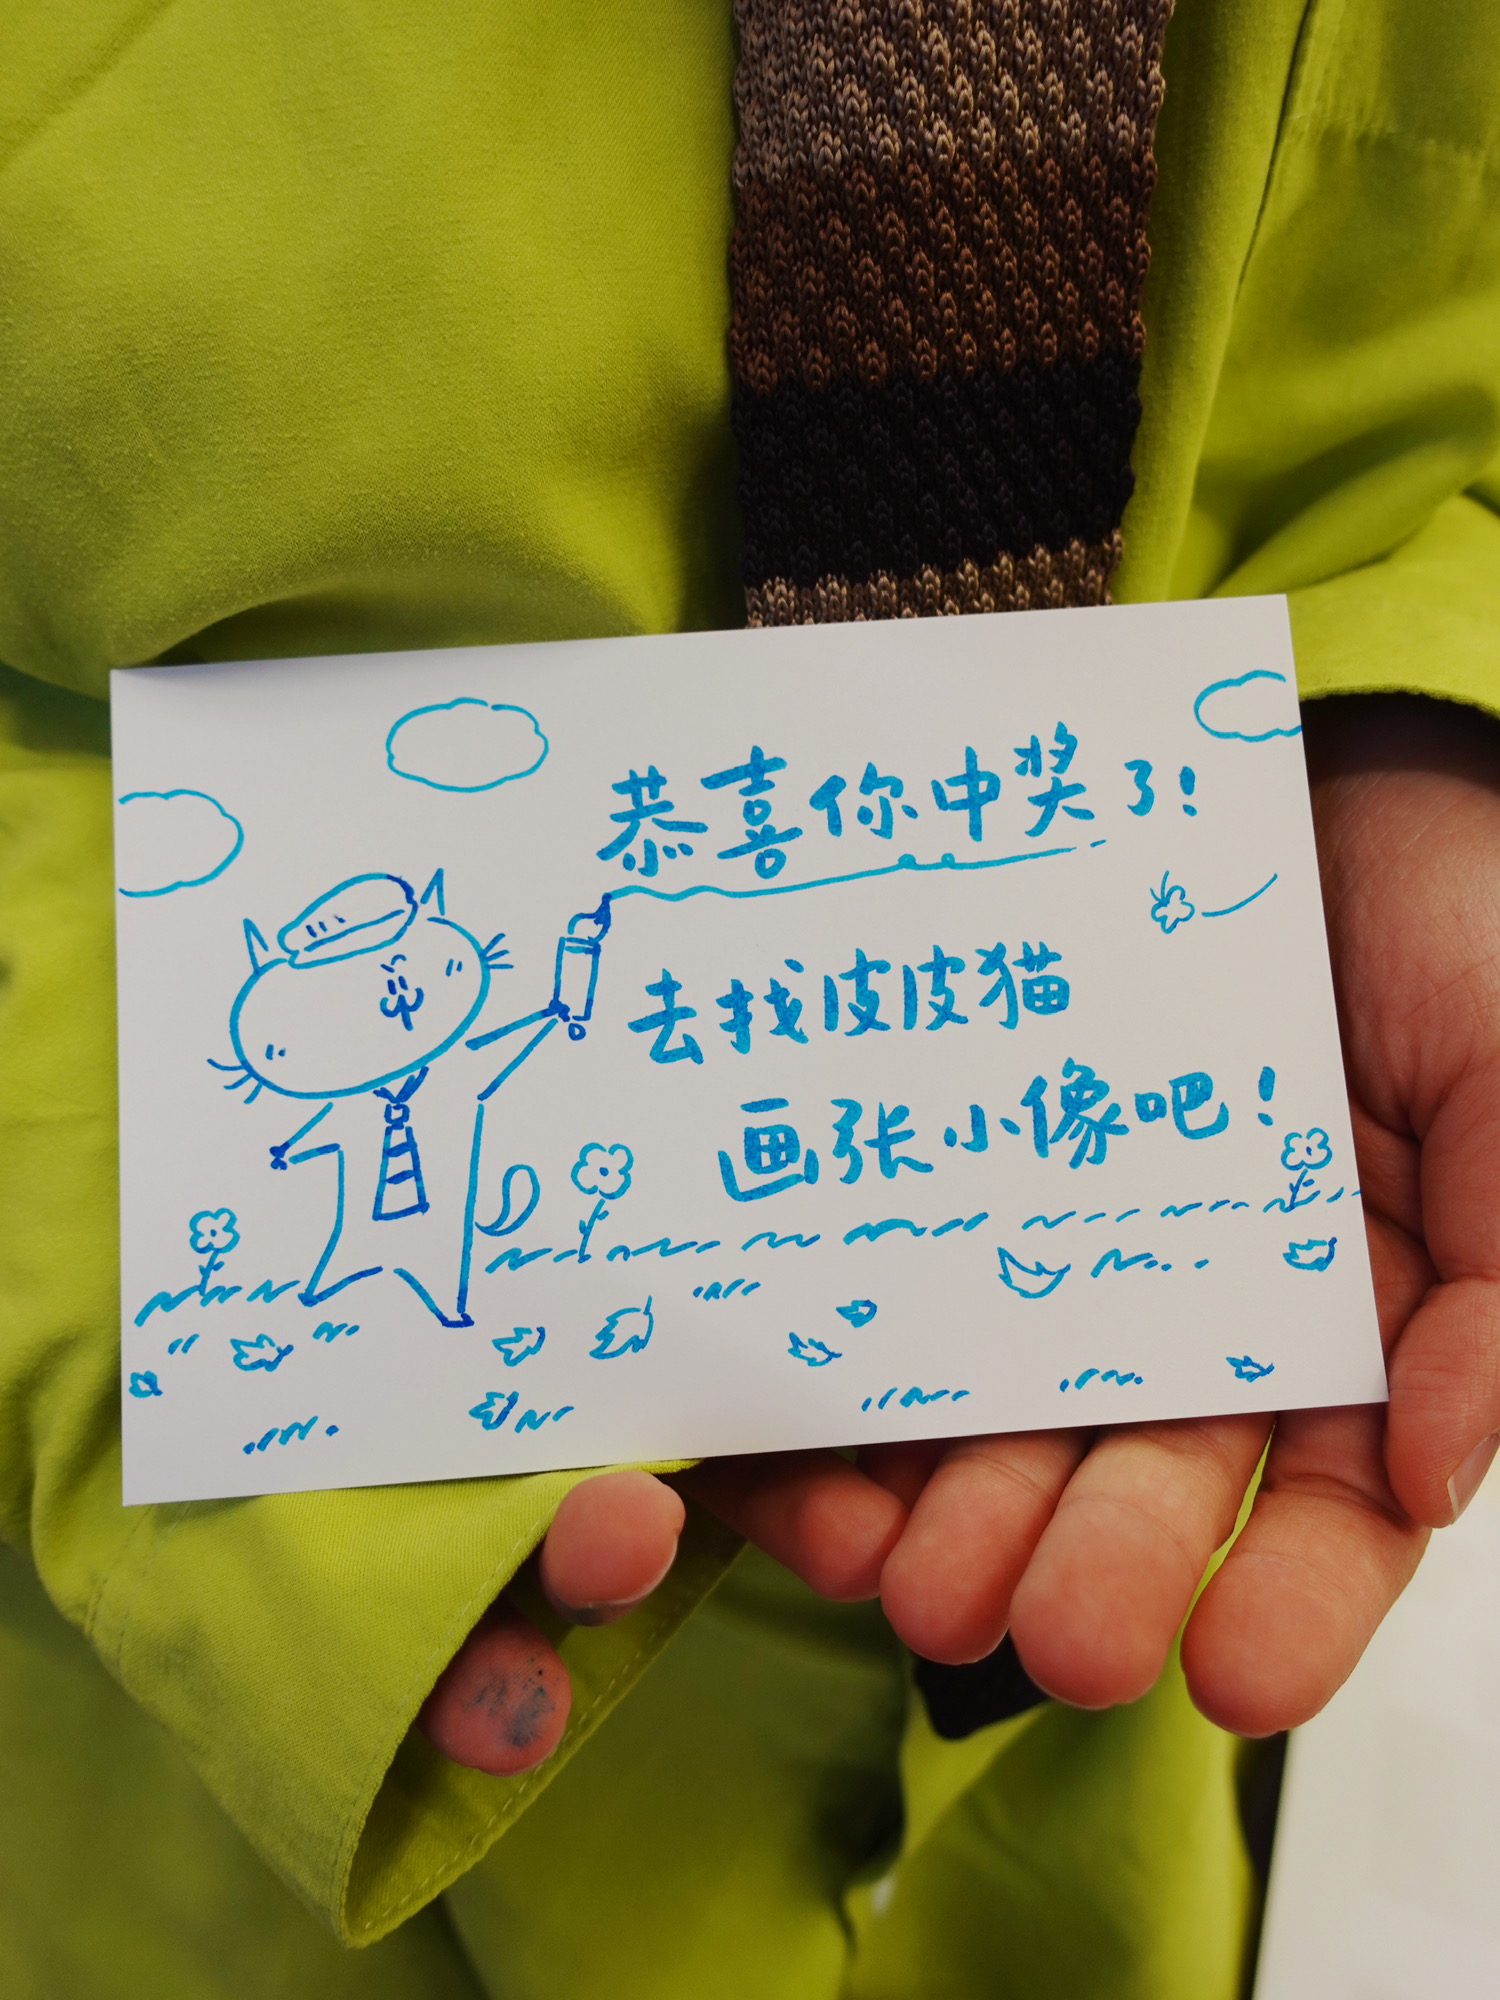 恭喜你中奖了!
去找皮皮猫
画张小像吧!